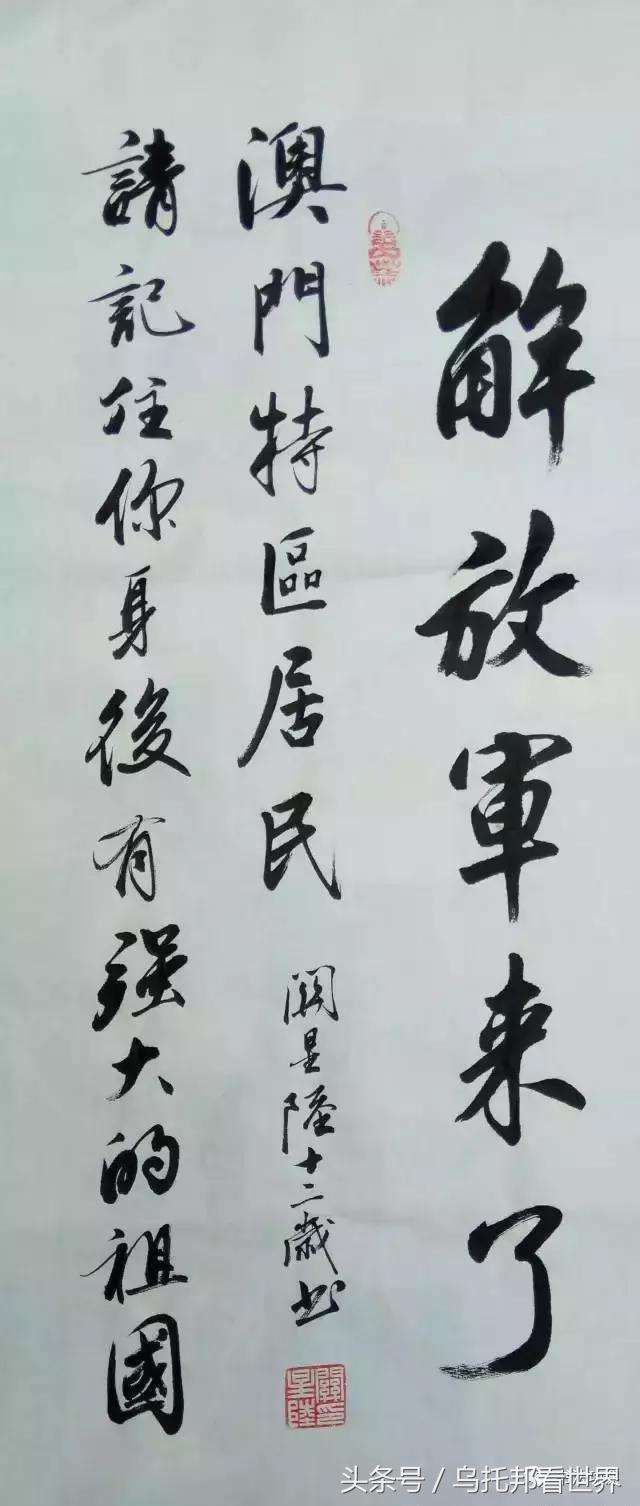 解放軍来了
澳門特區居民
請記住你身後有强大的祖國
關星陸十二歲书
關星陸印
头条号／乌托邦看世界